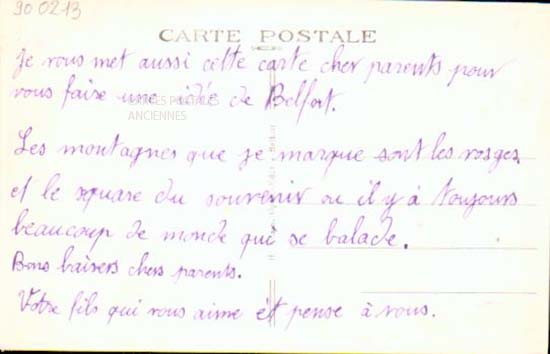 90 02 13
CARTE POSTALE
Je vous met aussi cette carte cher parents pour
vous faire une idée de Belfort.
CARTES POSTALES
ANCIENNES
Les montagnes que je marque sont les vosges.
et le square du souvenir ou il y à toujours
beaucoup de monde qui se balade.
Bons baisers chers parents.
Votre fils qui vous aime ét pense à vous.